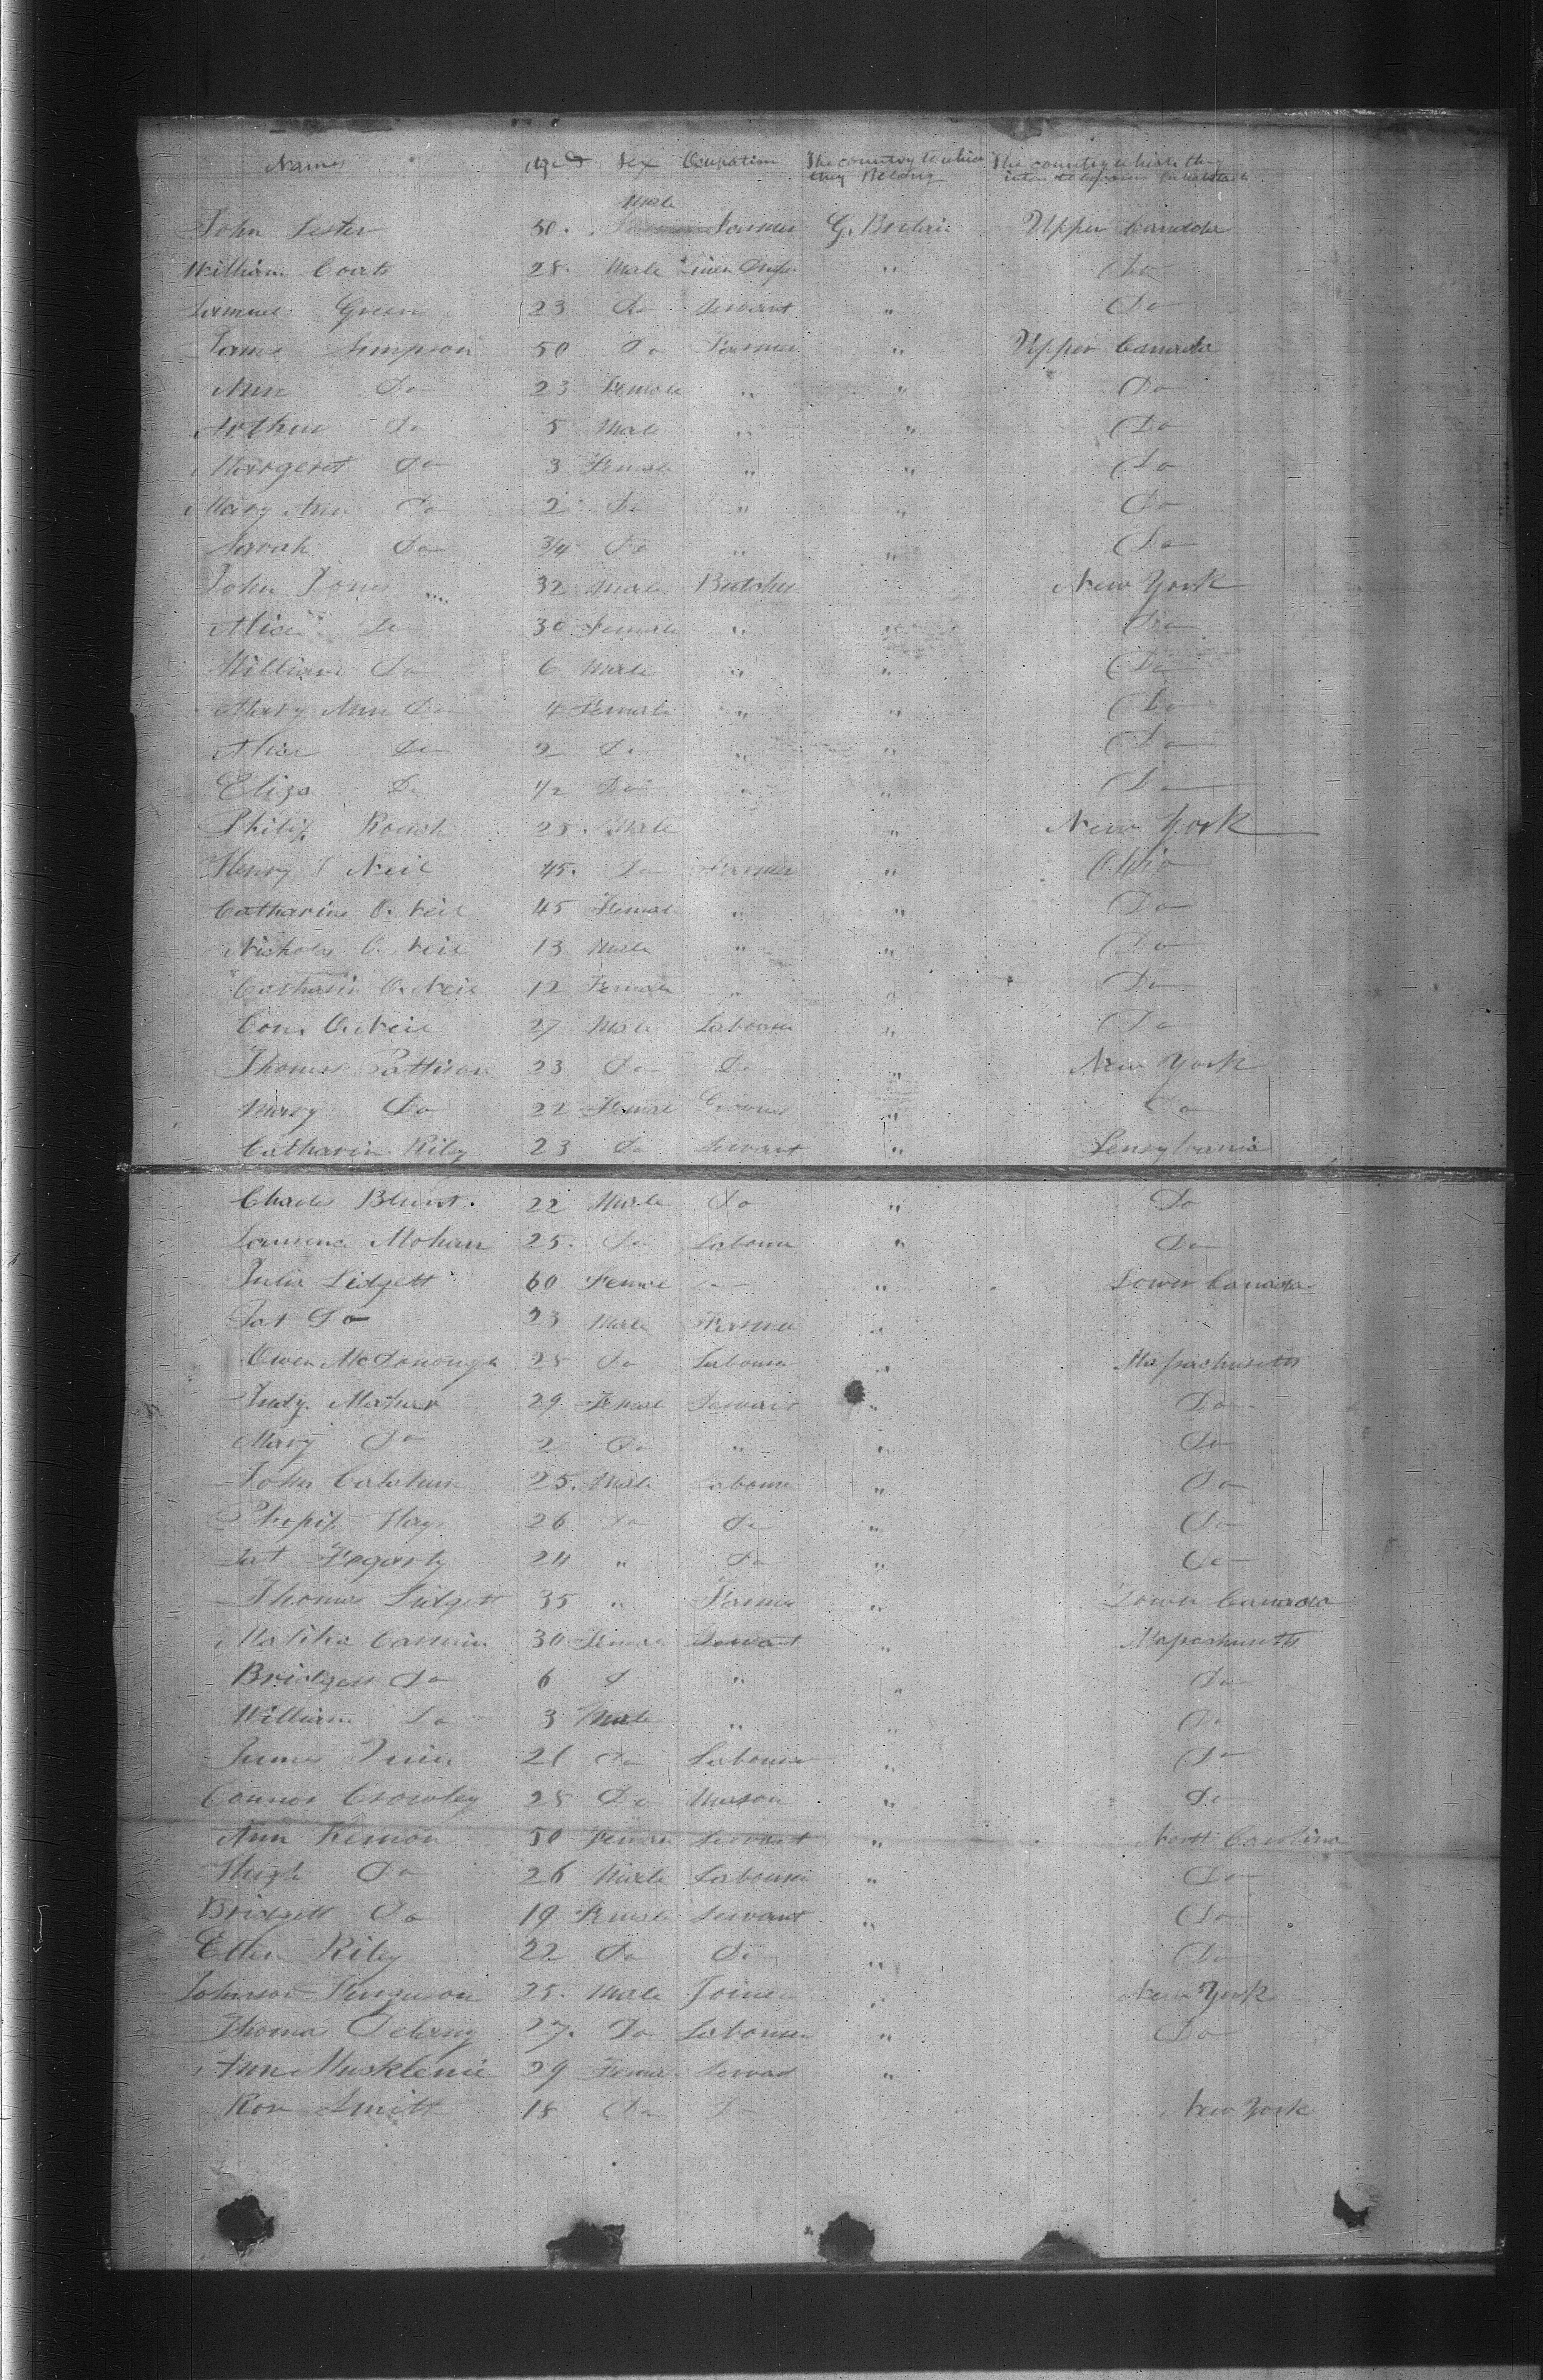 Names Aged Sex Ocupation The country to which they Belong The country which they
John Lester 50. Male Farmer G. Britain Upper Canadda
William Coats 28. Male Linen " Do
Samuel Green 23 Do Servant " Do
James Simpson 50 Do Farmer " Upper Canada
Ann Do 23 Female " " Do
Arthur Do 5 Male " " Do
Margeret Do 3 Female " " Do
Mary Ann Do 2 Do " " Do
Sarah Do 3/4 Do " " Do
John Jones 32 Male Butcher New York
Alice Do 30 Female " " Do
William Do 6 Male " " Do
Mary Ann Do 4 Female " " Do
Alice Do 2 Do " " Do
Eliza Do 1/2 Do " " Do
Philip 25. Male " New York
Henry O Neil 45. Do Farmer " Ohio
Catharine O. Neil 45 Female " " Do
Nicholas O. Neil 13 Male " " Do
Catharin O. Neil 12 Female " " Do
Con. O. Neil 27 Male Labourer " Do
Thomas Pattison 23 Do Do " New York
Mary Do 22 Female " Do
Catharin Riley 23 Do Servant " Pensylvania
Charles Blunt. 22 Male Do " Do
Laurence Mohan 25. Do Labourer " Do
Julia Lidgett 60 Female " Lower Canada
Pat Do 23 Male Farmer "
Owen McDonough 28 Do Labourer " Massachusetts
Judy 29 Female Servant " Do
Mary Do 2 Do " " Do
John 25. Male Labourer " Do
26 Do Do " Do
Pat Fogarty 24 " Do " Do
Thomas Lidgett 35 " Farmer " Lower Canada
30 Female Servant " Massachusetts
Bridgett Do 6 D " " Do
William Do 3 Male " " Do
James Do Labourer " Do
Connor Crowley 28 Do Mason " Do
Ann Kernon 50 Female Servant " North Carolina
Hugh Do 26 Male Labourer " Do
Bridgett Do 19 Female Servant " Do
Ellen Riley 22 Do Do " Do
Johnson Ferguson 25. Male Joiner " New York
Thomas 27. Do Labourer " Do
Ann 29 Female Servant "
Smith 18 Do Do New York